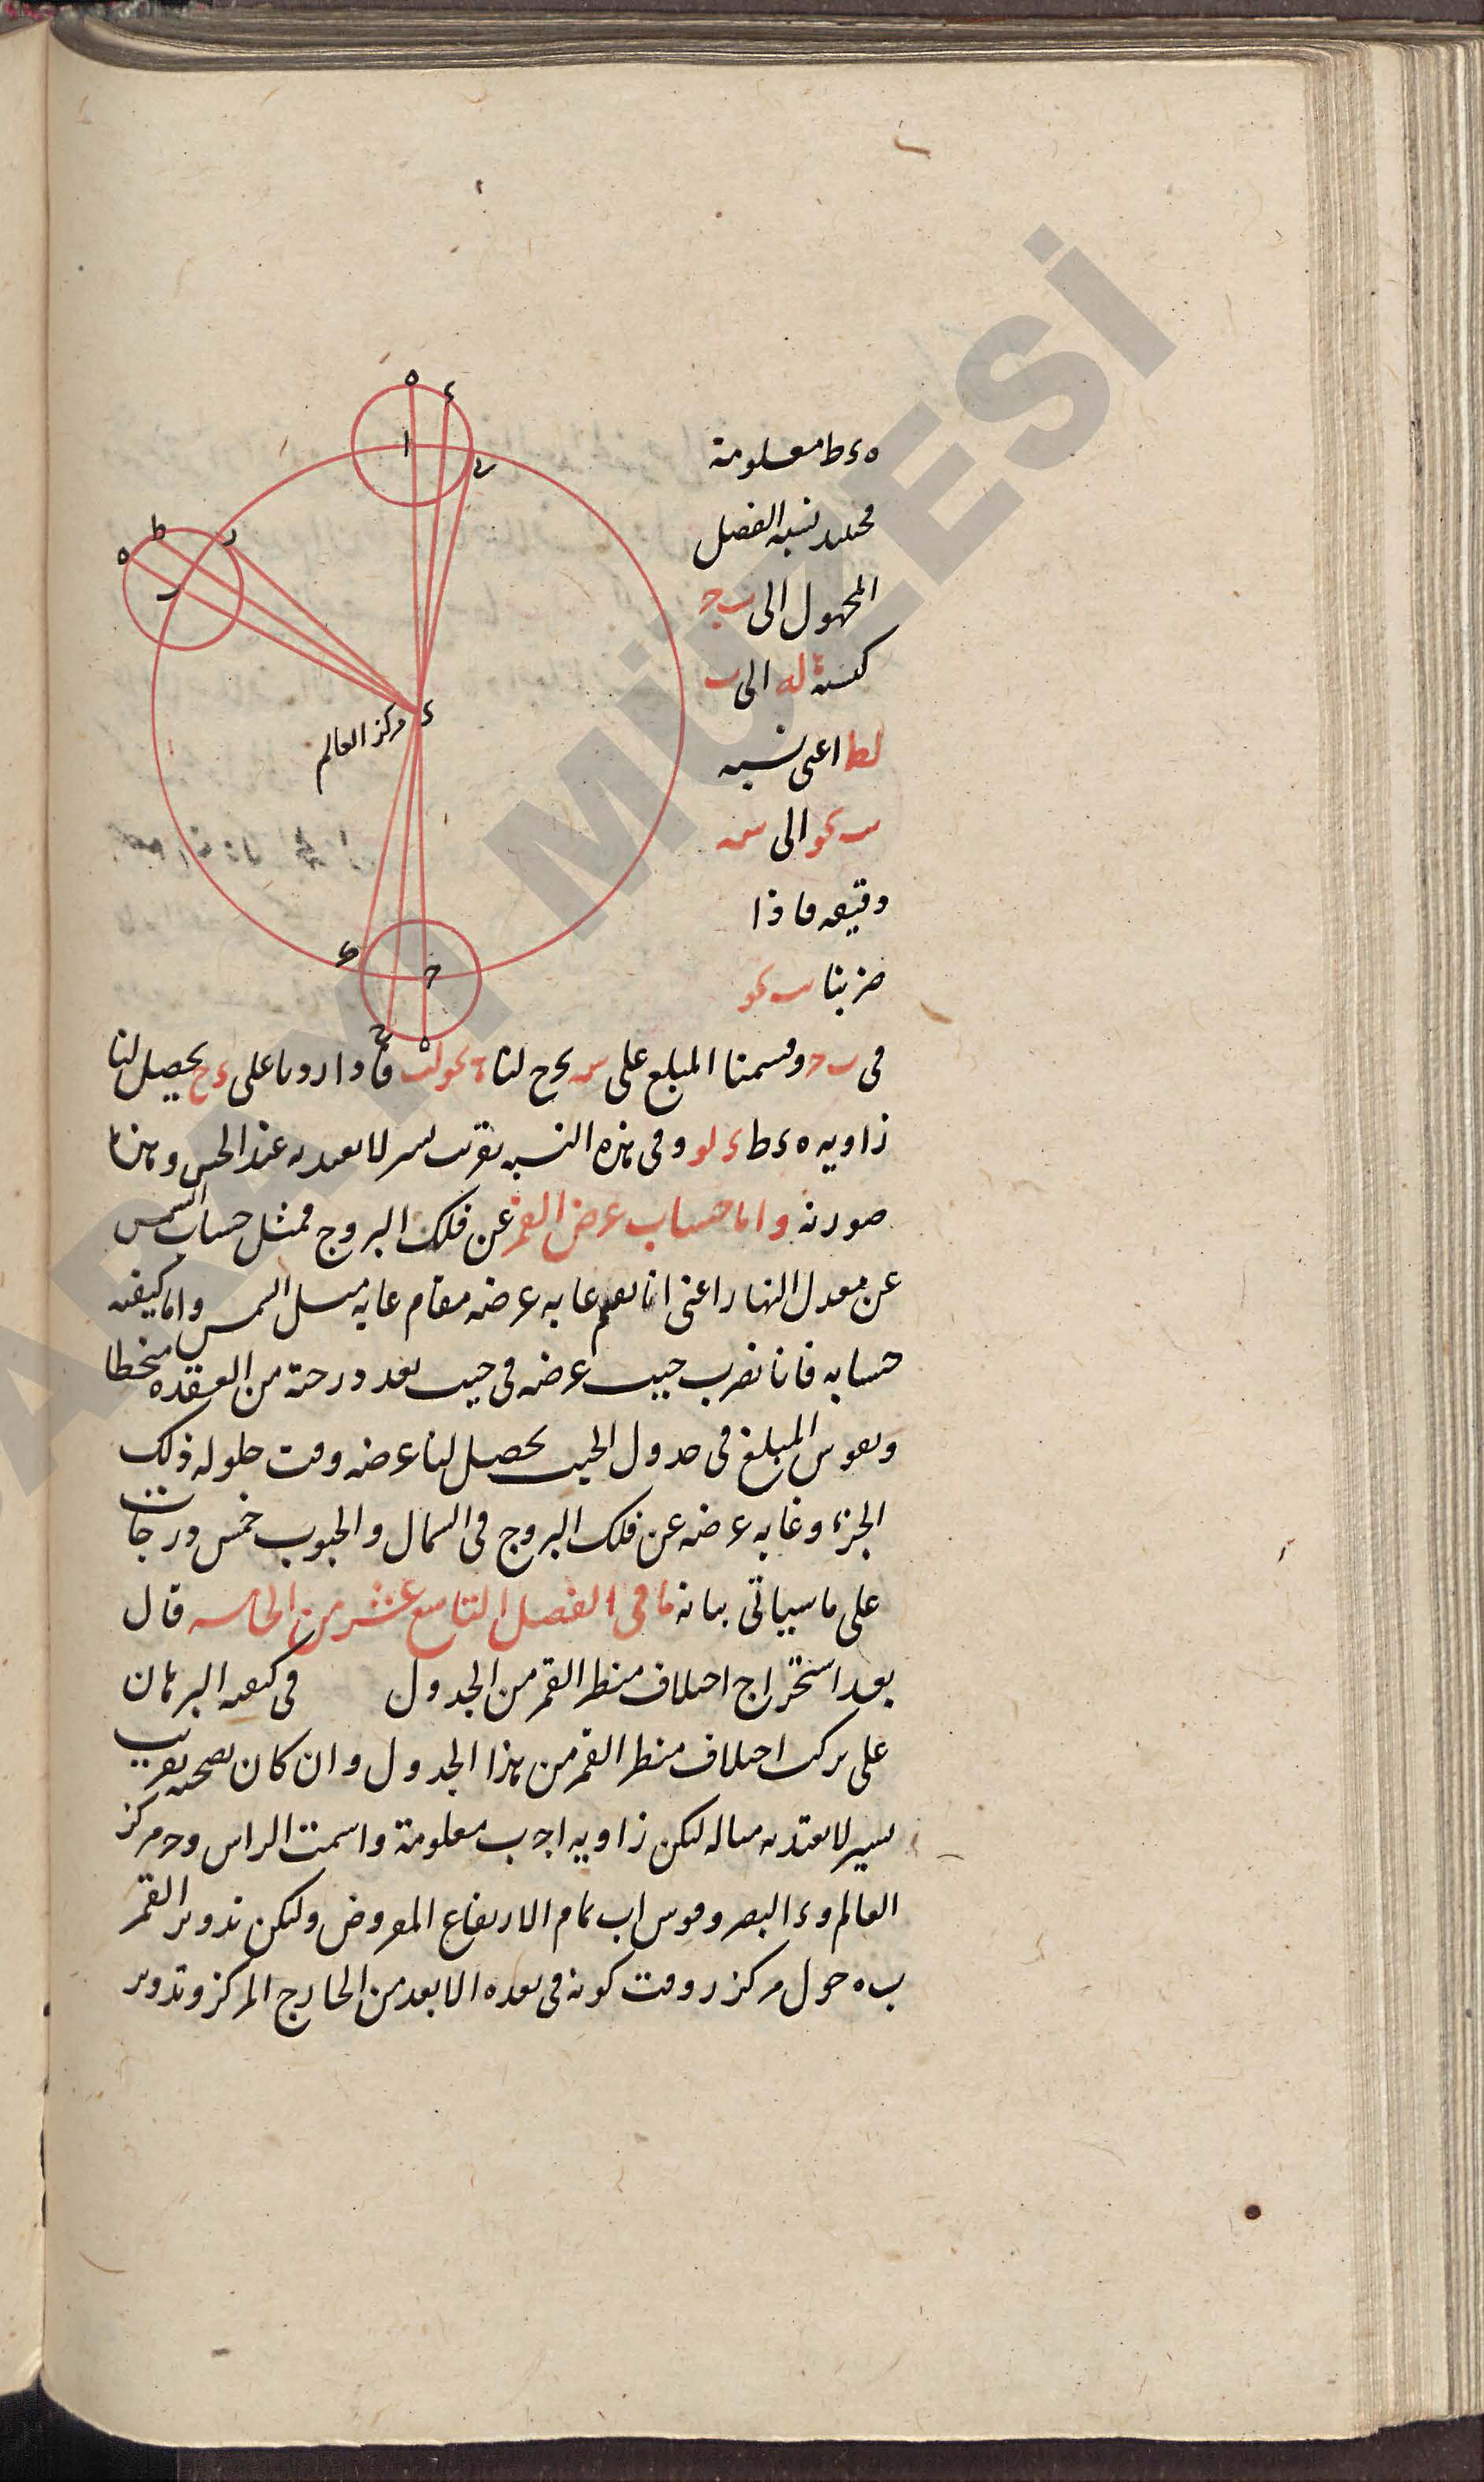 ه
ء
ا
ح
ط
ه
ر
ب
ء
مركز العالم
ط
ح
ح
ه
ه ء ط معلومة
فحينئذ نسبة الفضل
المجهول الى ب ج
كنسبة له الى ب
لط اعنى نسبة
ب كو الى س
دقيقه فاذا
ضربنا ب كو
فى ب ح وقسمنا المبلغ على س يخرج لنا كو فاذا زدنا على ء ح يحصل لنا
زاويه ه ء ط ء لو وفى هذه النسبه تقريب يسير لا يعتد به عند الحس وهذا
صورته واما حساب عرض القمر عن فلك البروج فمثل حساب الشمس
عن معدل النهار اعنى انا نقيم غايه عرضه مقام غايه ميل الشمس واما كيفيه
حسابه فانا نضرب جيب عرضه فى جيب بعد درجته من العقده منحطا
ونقوس المبلغ فى جدول الجيب يحصل لنا عرضه وقت حلوله ذلك
الجزء وغايه عرضه عن فلك البروج فى الشمال والجنوب خمس درجات
على ما سياتى بيانه ما فى الفصل التاسع عشر من الخامسه قال
بعد استخراج اختلاف منظر القمر من الجدول فى كيفيه البرهان
على تركيب اختلاف منظر القمر من هذا الجدول وان كان يصحبه تقريب
يسير لا يعتد به مثاله ليكن زاويه ا ج ب معلومة وا سمت الراس وح مركز
العالم وء البصر وقوس اب تمام الارتفاع المفروض وليكن تدوير القمر
ب ه حول مركز ر وقت كونه فى بعده الابعد من الخارج المركز وتدوير
ARAM MÜZESİ